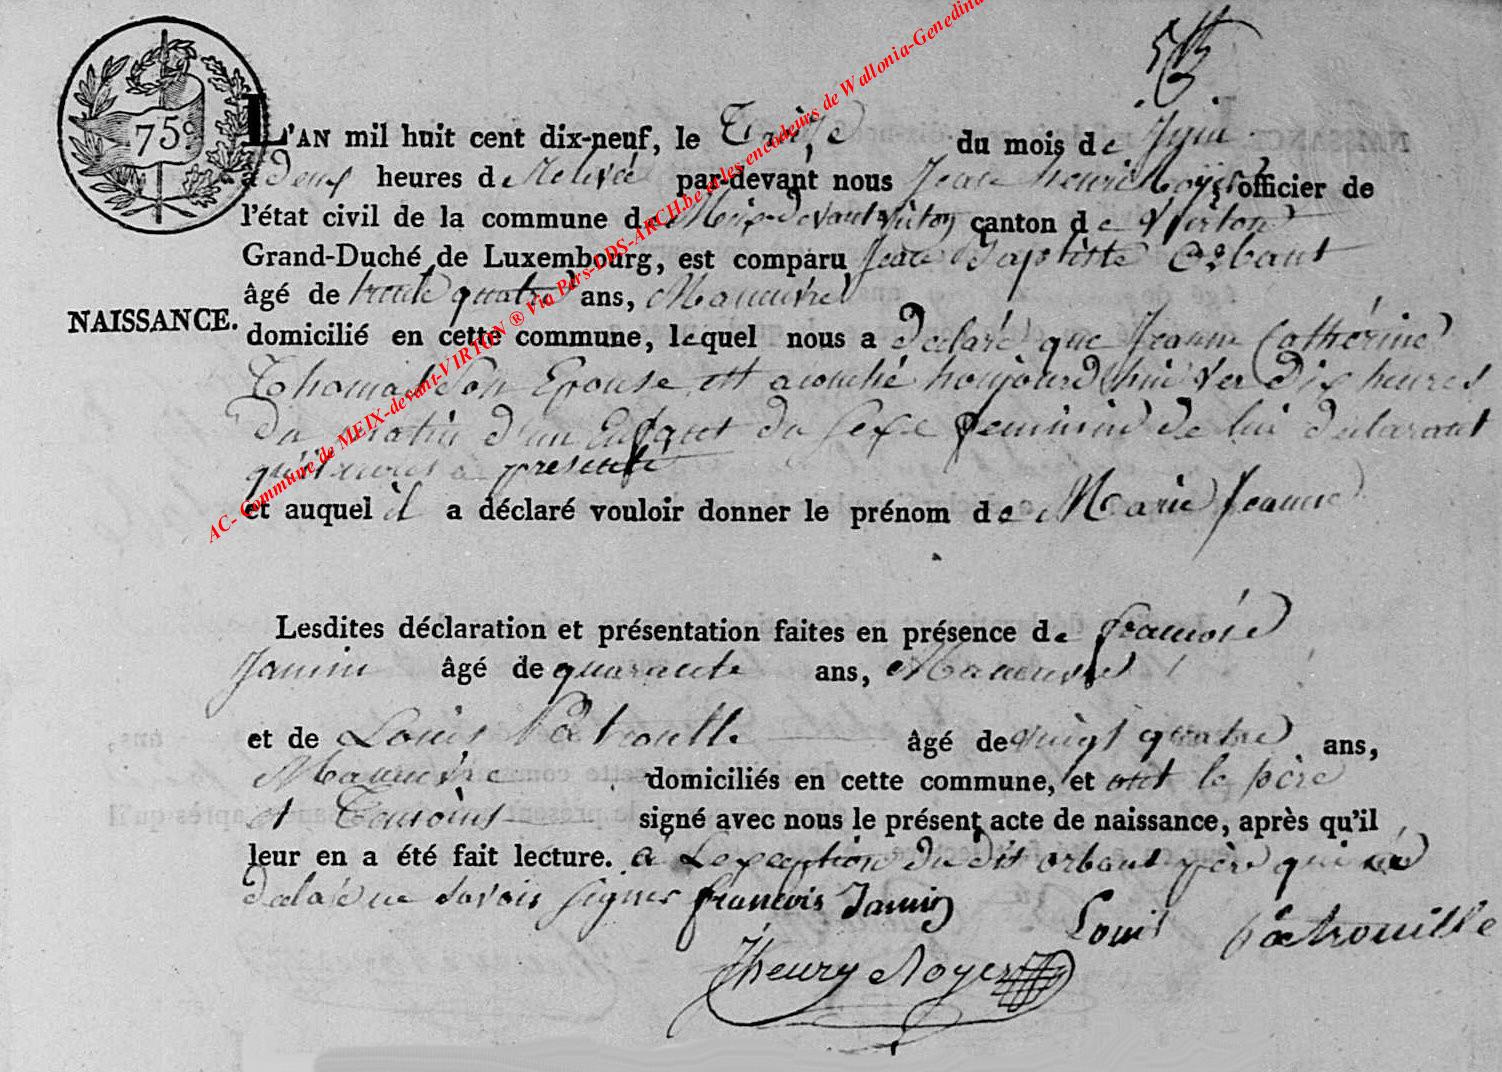 75c
L'AN mil huit cent dix-neuf, le Treize du mois de Juin
a deux heures de Relevée par-devant nous Jean henri Royer officier de
l'état civil de la commune de Meix devant virton canton de Virton
Grand-Duché de Luxembourg, est comparu Jean Baptiste Orbant
âgé de trente quatre ans, Manœuvre
NAISSANCE.
domicilié en cette commune, lequel nous a declaré que Jeanne Cathérine
Thomas Son Epouse est acouché houjourd'hui ver dix heures
du matin d'un Enfant du sexe feminin de lui declarant
qu'il nous a presenté
et auquel il a déclaré vouloir donner le prénom de Marie Jeanne
Lesdites déclaration et présentation faites en présence de francois
Jamin âgé de quarante ans, Manœuvre
et de Louis Patrouille âgé de vingt quatre ans,
Manœuvre domiciliés en cette commune, et ont le père
et Temoins signé avec nous le présent acte de naissance, après qu'il
leur en a été fait lecture. a L'exception du dit orbant père qui a
declaré ne savoir signer francois Jamin
Louis Patrouille
JHenry Royer
AC- Commune de MEIX-devant-VIRTON ® Via Pers-DDS-ARCH.be et les encodeurs de Wallonia-Genedina